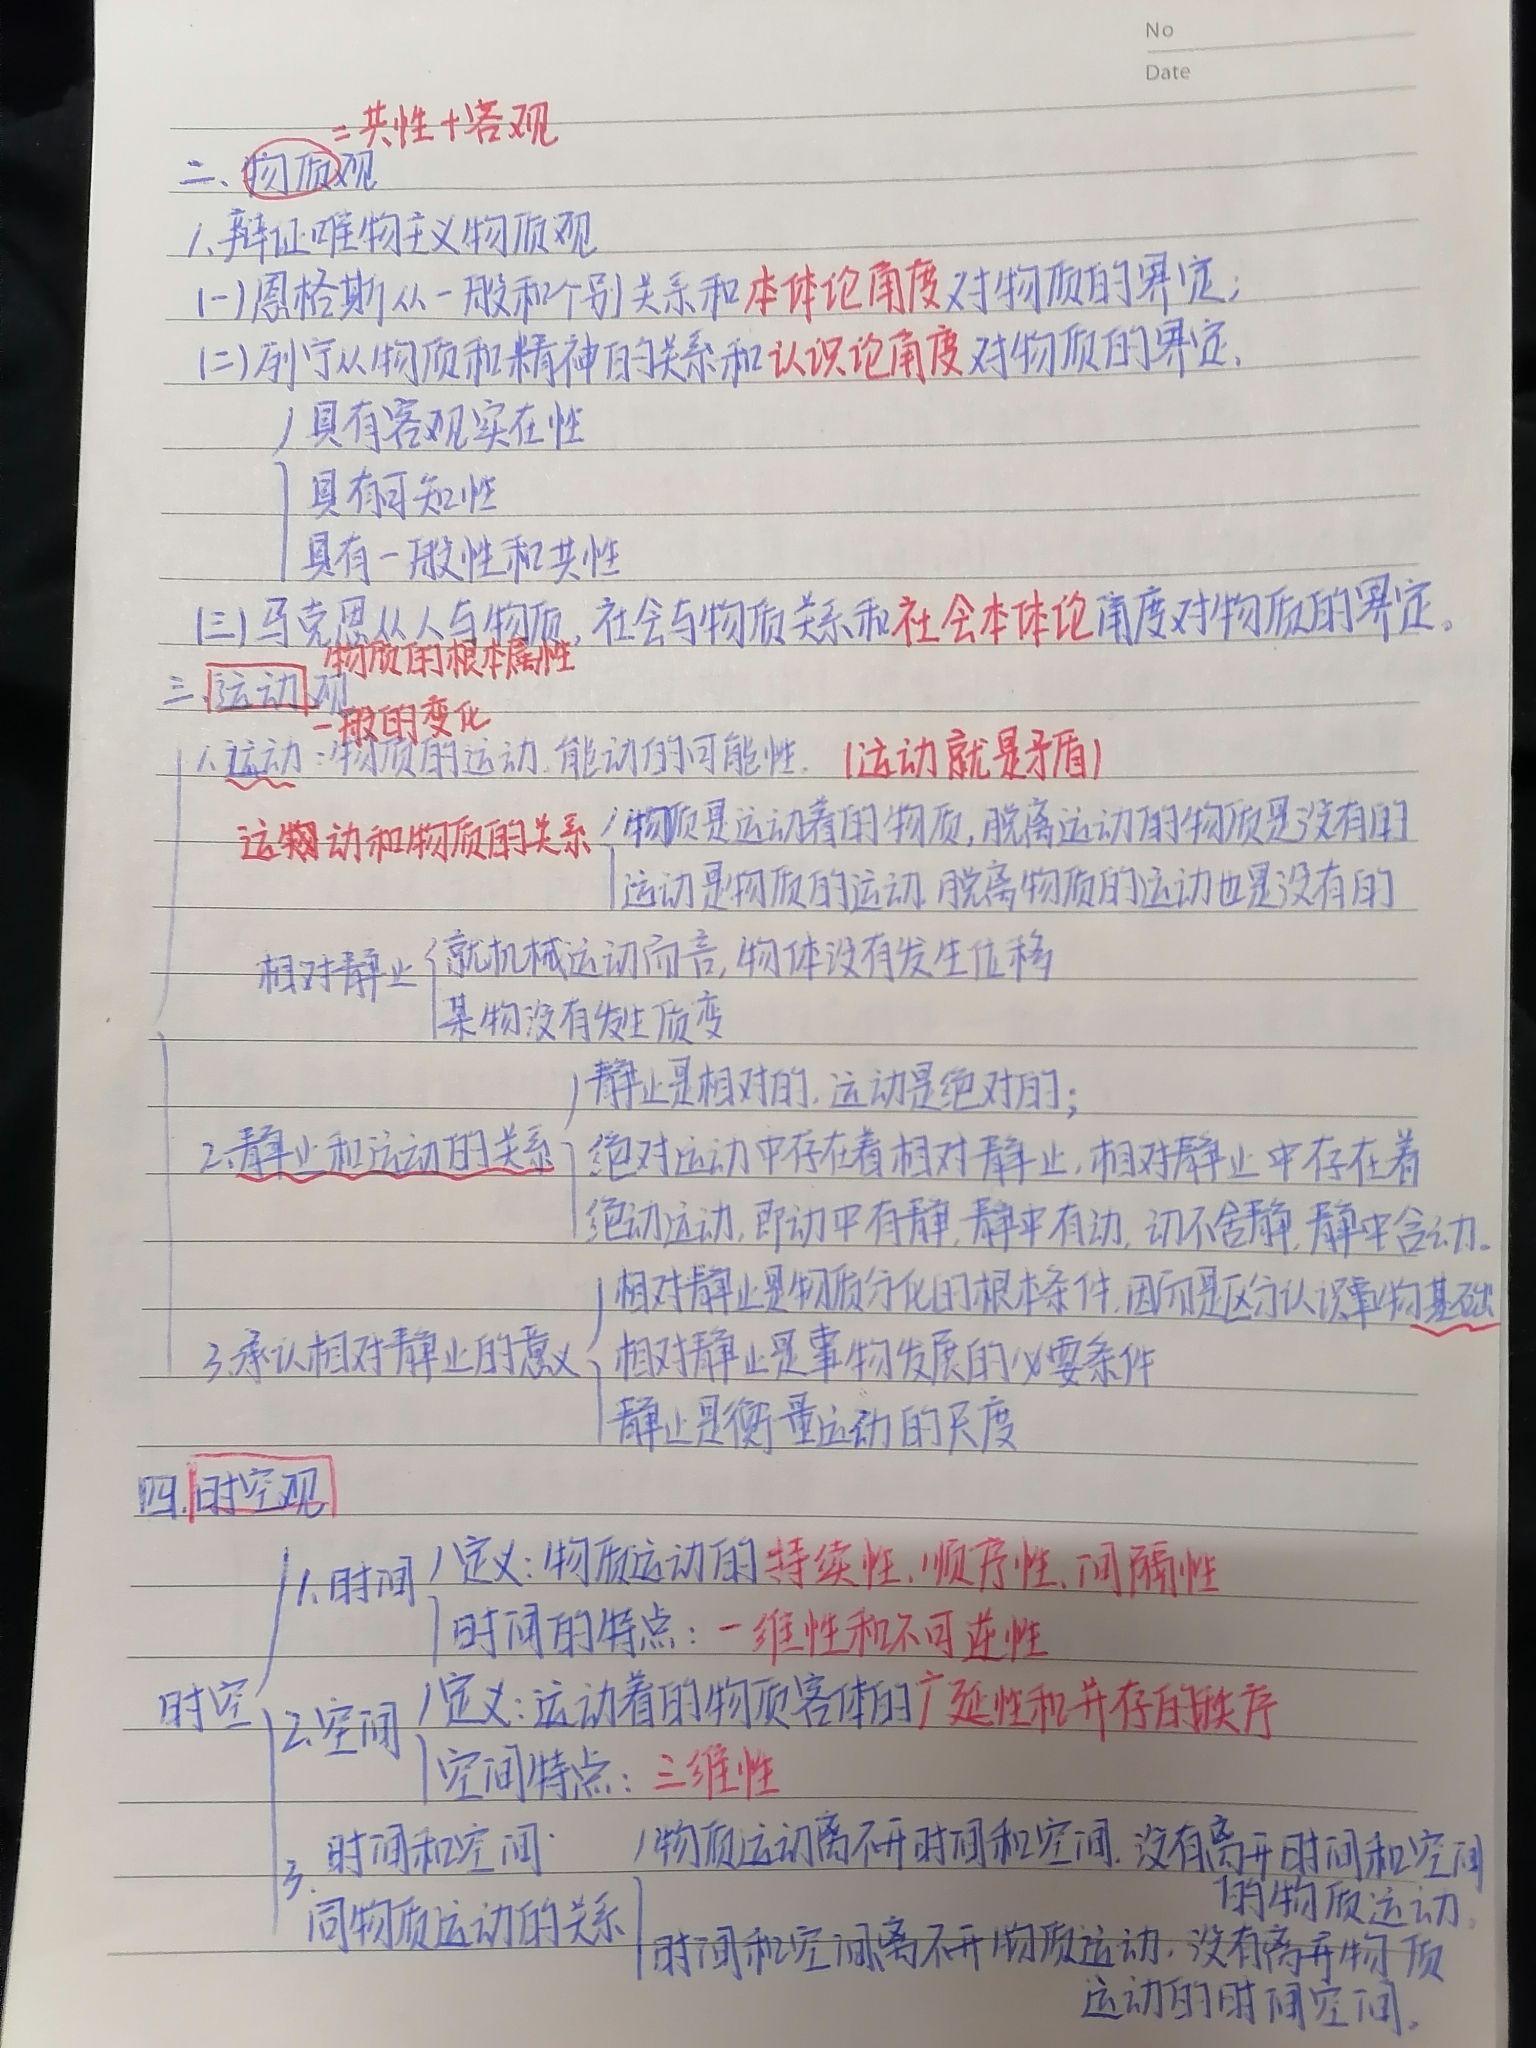 No
Date
=共性+客观
二、物质观
1、辩证唯物主义物质观
(一)恩格斯从一般和个别关系和本体论角度对物质的界定;
(二)列宁从物质和精神的关系和认识论角度对物质的界定.
具有客观实在性
具有可知性
具有一般性和共性
(三)马克思从人与物质,社会与物质关系和社会本体论角度对物质的界定。
物质的根本属性
三.运动观
一般的变化
1.运动:物质的运动.能动的可能性. (运动就是矛盾)
运动和物质的关系
物质是运动着的物质,脱离运动的物质是没有的
运动是物质的运动.脱离物质的运动也是没有的
相对静止
就机械运动而言,物体没有发生位移
某物没有发生质变
静止是相对的.运动是绝对的;
2.静止和运动的关系
绝对运动中存在着相对静止.相对静止中存在着
绝动运动.即动中有静,静中有动,动不舍静,静中含动。
相对静止是物质分化的根本条件.因而是区分认识事物基础
3.承认相对静止的意义
相对静止是事物发展的必要条件
静止是衡量运动的尺度
四.时空观
1.时间
定义:物质运动的持续性、顺序性、间隔性
时间的特点:一维性和不可逆性
时空
2.空间
定义:运动着的物质客体的广延性和并存的秩序
空间特点:三维性
3.时间和空间
同物质运动的关系
物质运动离不开时间和空间.没有离开时间和空间
的物质运动。
时间和空间离不开物质运动.没有离开物质
运动的时间空间。